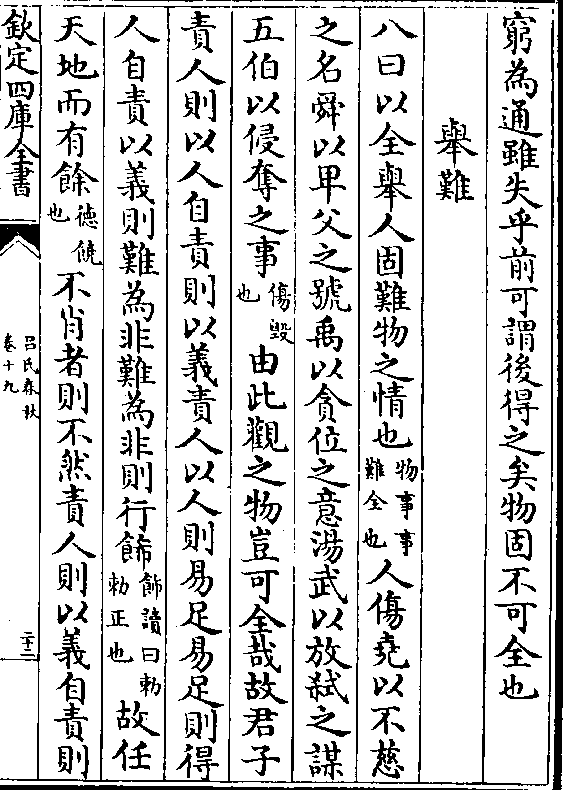 窮為通雖失乎前可謂後得之矣物固不可全也
舉難
八曰以全舉人固難物之情也物事事難全也人傷堯以不慈
之名舜以卑父之號禹以貪位之意湯武以放弒之謀
五伯以侵奪之事傷毀也由此觀之物豈可全哉故君子
責人則以人自責則以義責人以人則易足易足則得
人自責以義則難為非難為非則行飾飾讀曰勅勅正也故任
天地而有餘德饒也不肖者則不然責人則以義自責則
欽定四庫全書
呂氏春秋
卷十九
二十三